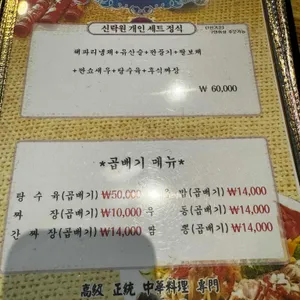 신락원 개인 세트 정식
해파리냉채+유산슬+깐풍기+팔보채
+깐쇼새우+탕수육+후식짜장
₩ 60,000
*곱배기 메뉴*
탕 수 육(곱배기) ₩50,000 밥(곱배기) ₩14,000
짜 장(곱배기) ₩10,000 우 동(곱배기) ₩14,000
간 짜 장(곱배기) ₩14,000 짬 뽕(곱배기) ₩14,000
高級 正統 中華料理 專門